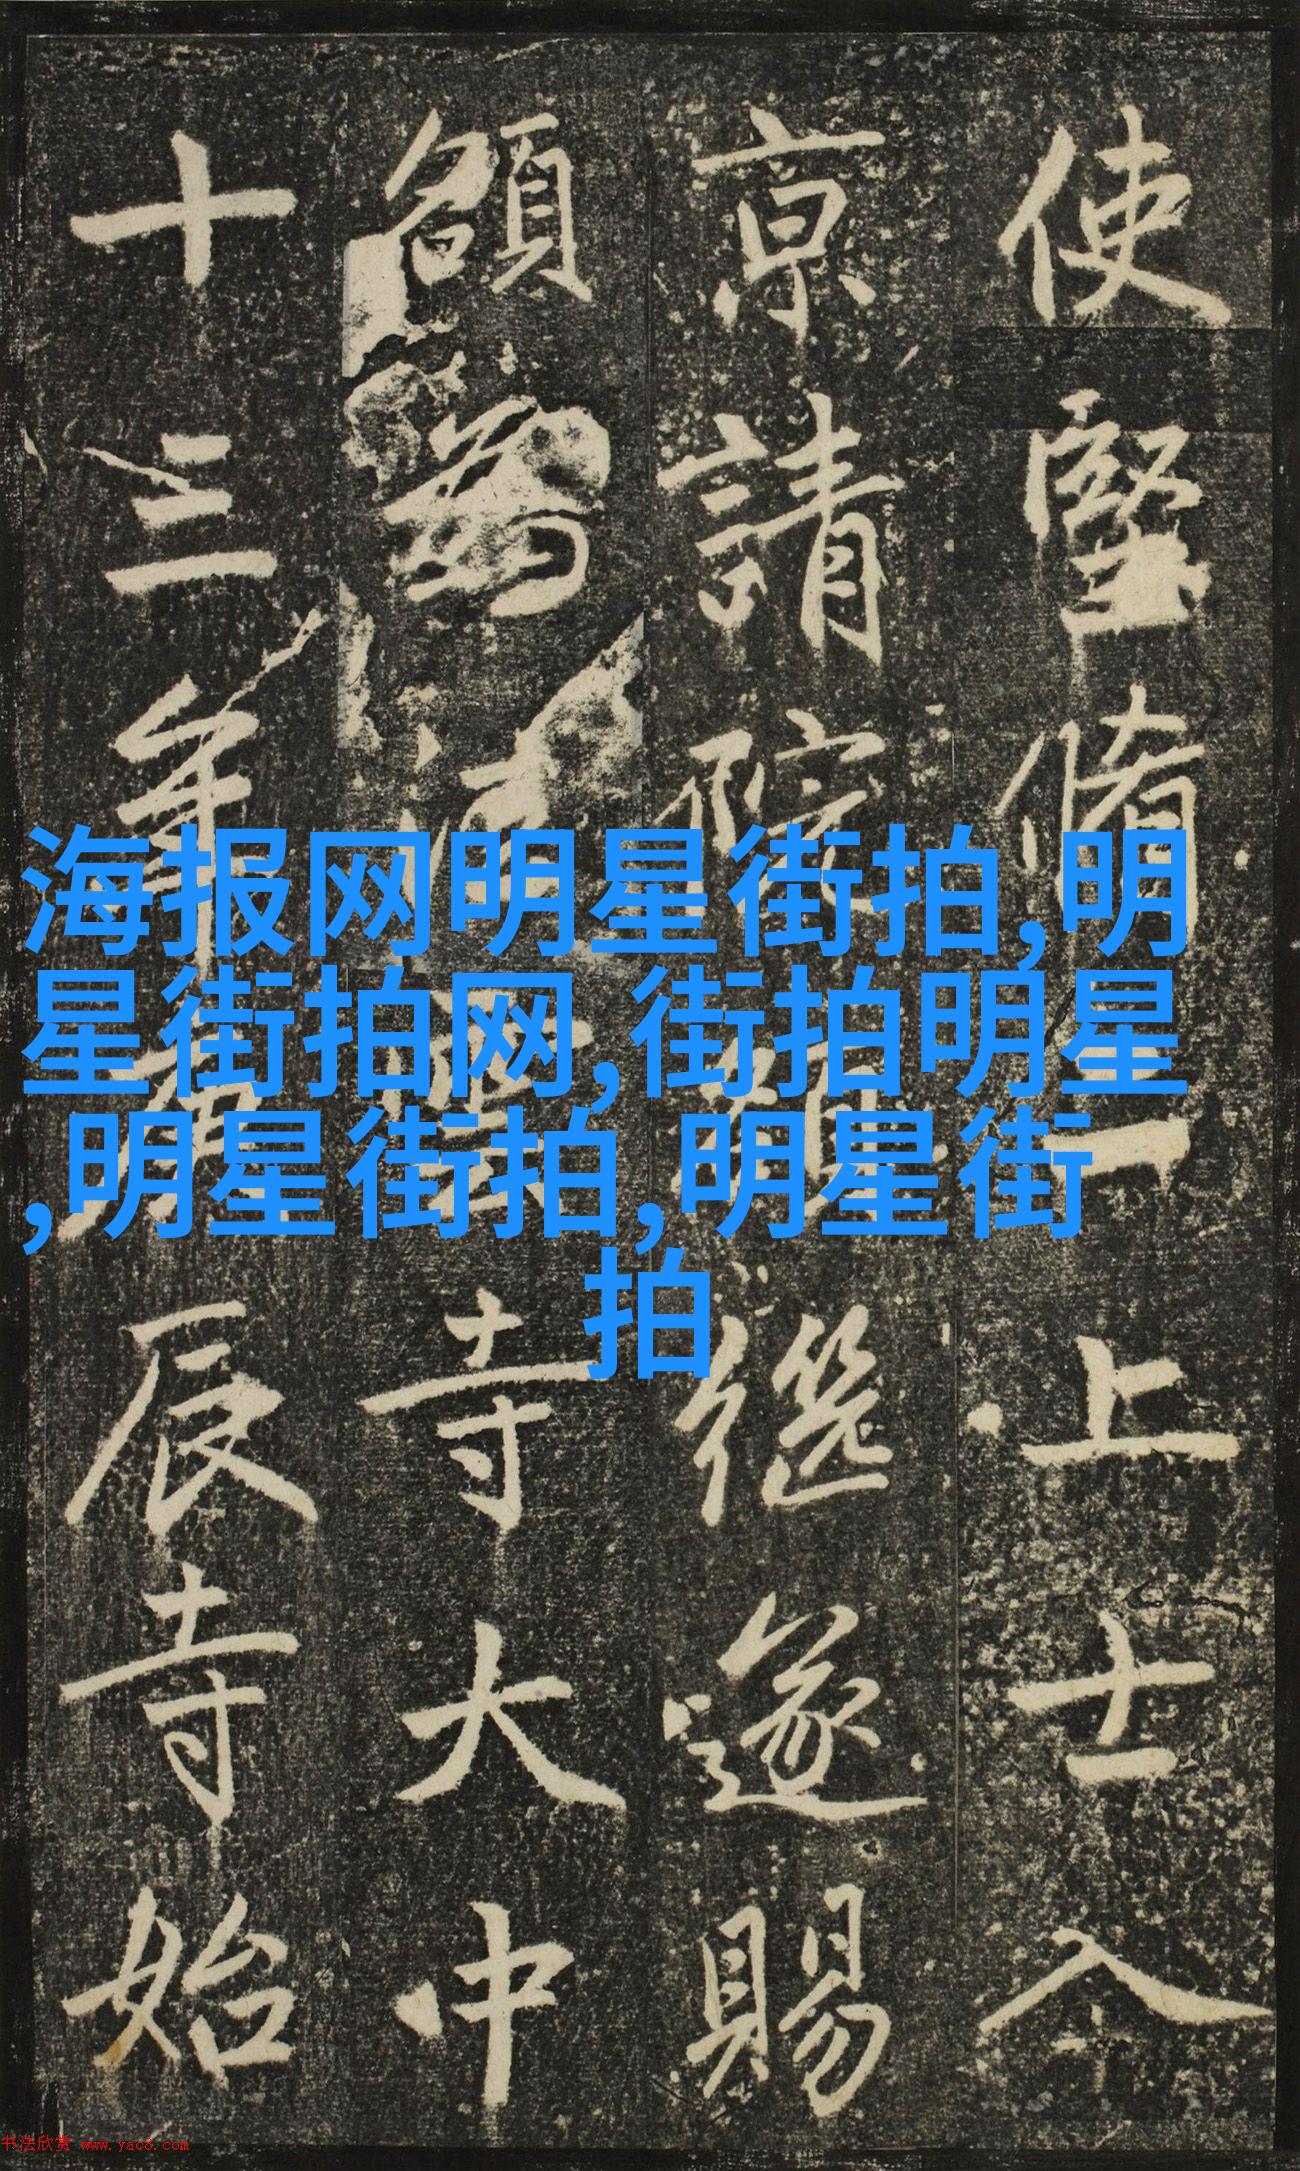 使堅脩二上士入
京請院額繼遂賜
額為
寺大中
十三年庚辰寺始
海报网明星街拍,明
星街拍网,街拍明星
,明星街拍,明星街
拍
书法欣赏 www.yac8.com